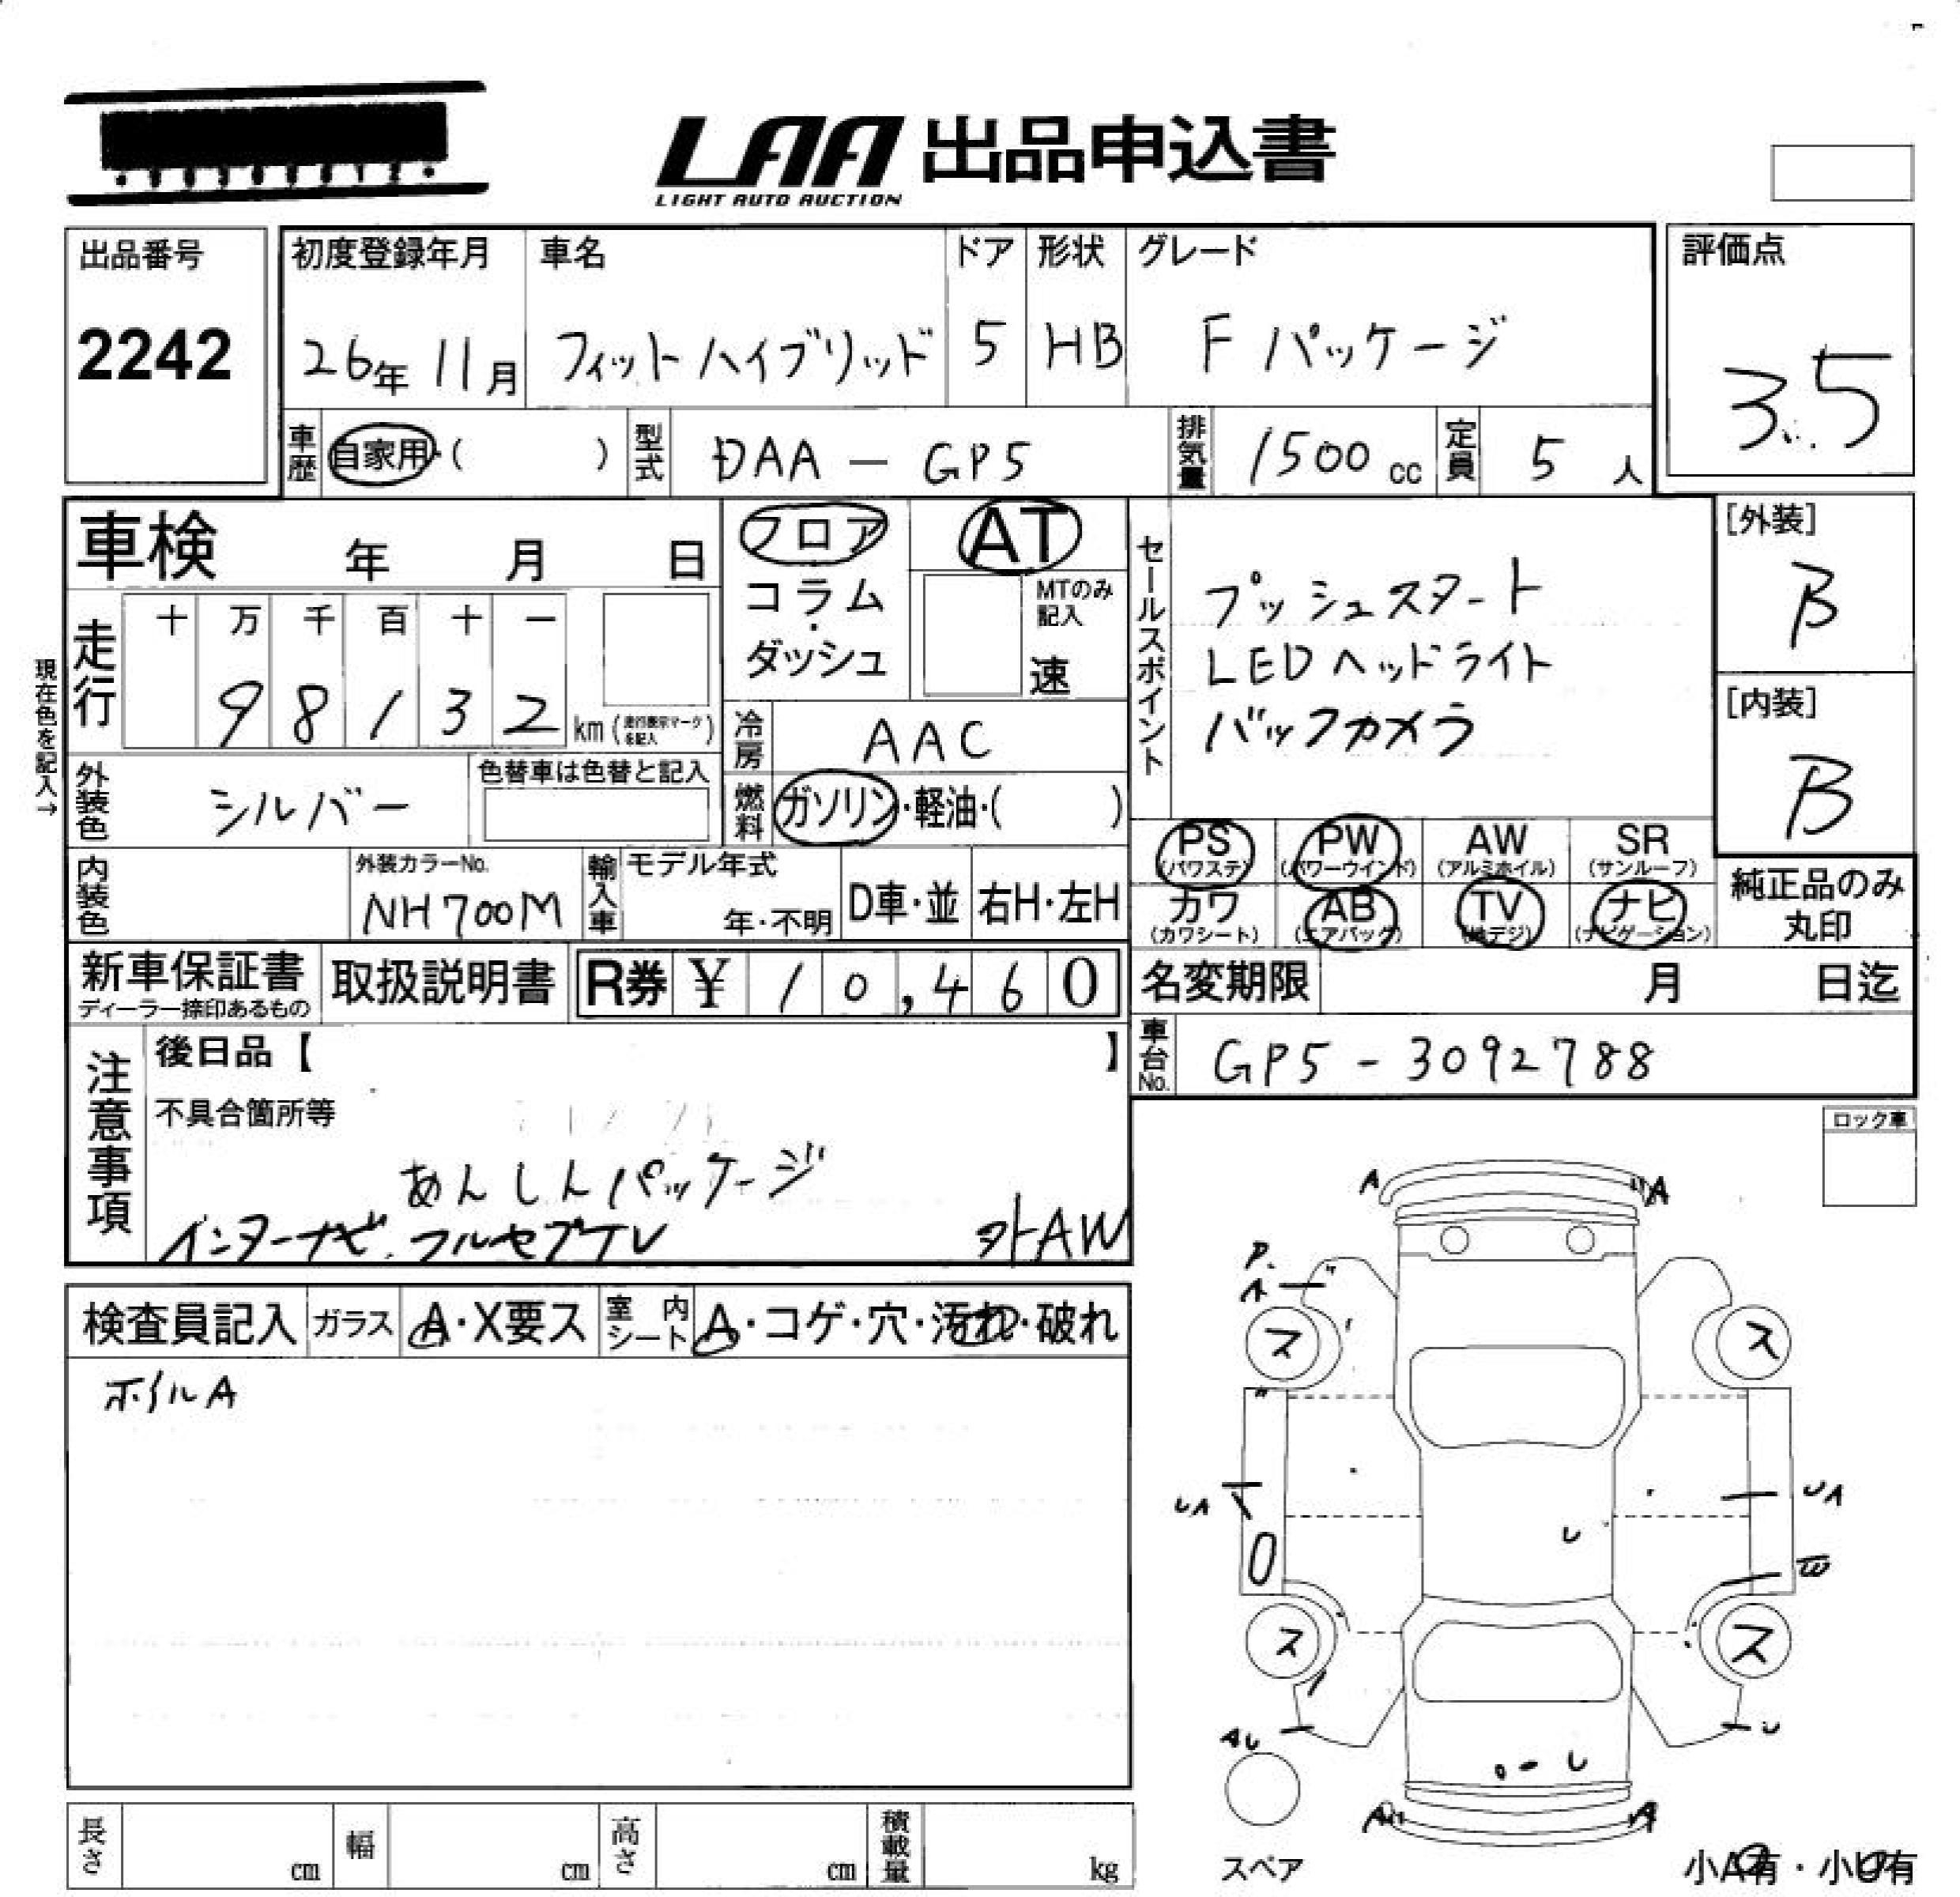 LAA 出品申込書
LIGHT AUTO AUCTION
出品番号
2242
初度登録年月
26年 11月
車名
フィットハイブリッド
ドア
5
形状
HB
グレード
F パッケージ
評価点
3.5
車歴 自家用・( )
型式 DAA - GP5
排気量 1500 cc
定員 5 人
車検 年 月 日
フロア
コラム・ダッシュ
AT
MTのみ記入
速
セールスポイント
プッシュスタート
LEDヘッドライト
バックカメラ
[外装]
B
[内装]
B
現在色を記入→
走行 十 万 千 百 十 一
98132 km (走行表示マークを記入)
冷房 AAC
外装色 シルバー
色替車は色替と記入
燃料 ガソリン・軽油・( )
PS (パワステ)
PW (パワーウインド)
AW (アルミホイル)
SR (サンルーフ)
カワ (カワシート)
AB (エアバッグ)
TV (地デジ)
ナビ (ナビゲーション)
純正品のみ丸印
内装色
外装カラーNo.
NH700M
輸入車 モデル年式
年・不明
D車・並
右H・左H
新車保証書
ディーラー捺印あるもの
取扱説明書
R券 ¥ 10,460
名変期限 月 日迄
車台No. GP5 - 3092788
注意事項
後日品【 】
不具合箇所等
あんしんパッケージ
インターナビ.フルセグTV 外AW
ロック車
検査員記入
ガラス A・X要ス
室内シート A・コゲ・穴・汚れ・破れ
ホイルA
A A
P.
A
ス ス
UA UA
ス ス
AU U
U
U
A A
スペア
小A有・小U有
長さ cm
幅 cm
高さ cm
積載量 kg